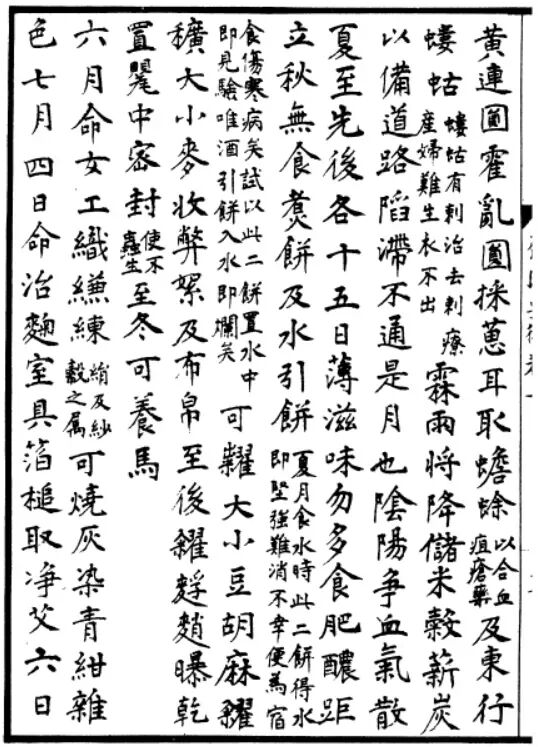 黃連圎霍亂圎採葸耳取蟾蜍以合血疽瘡藥及東行
螻蛄螻蛄有刺治去刺療產婦難生衣不出霖雨將降儲米穀薪炭
以備道路陷滯不通是月也陰陽爭血氣散
夏至先後各十五日薄滋味勿多食肥醲距
立秋無食煑餅及水引餅夏月食水時此二餅得水即堅強難消不幸便為宿
食傷寒病矣試以此二餅置水中即見驗唯酒引餅入水即爛矣可糶大小豆胡麻糴
穬大小麥收弊絮及布帛至後糴麩䴬曝乾
置甖中密封使不蟲生至冬可養馬
六月命女工織縑練絹及紗縠之属可燒灰染青紺雜
色七月四日命治麴室具箔槌取净艾六日